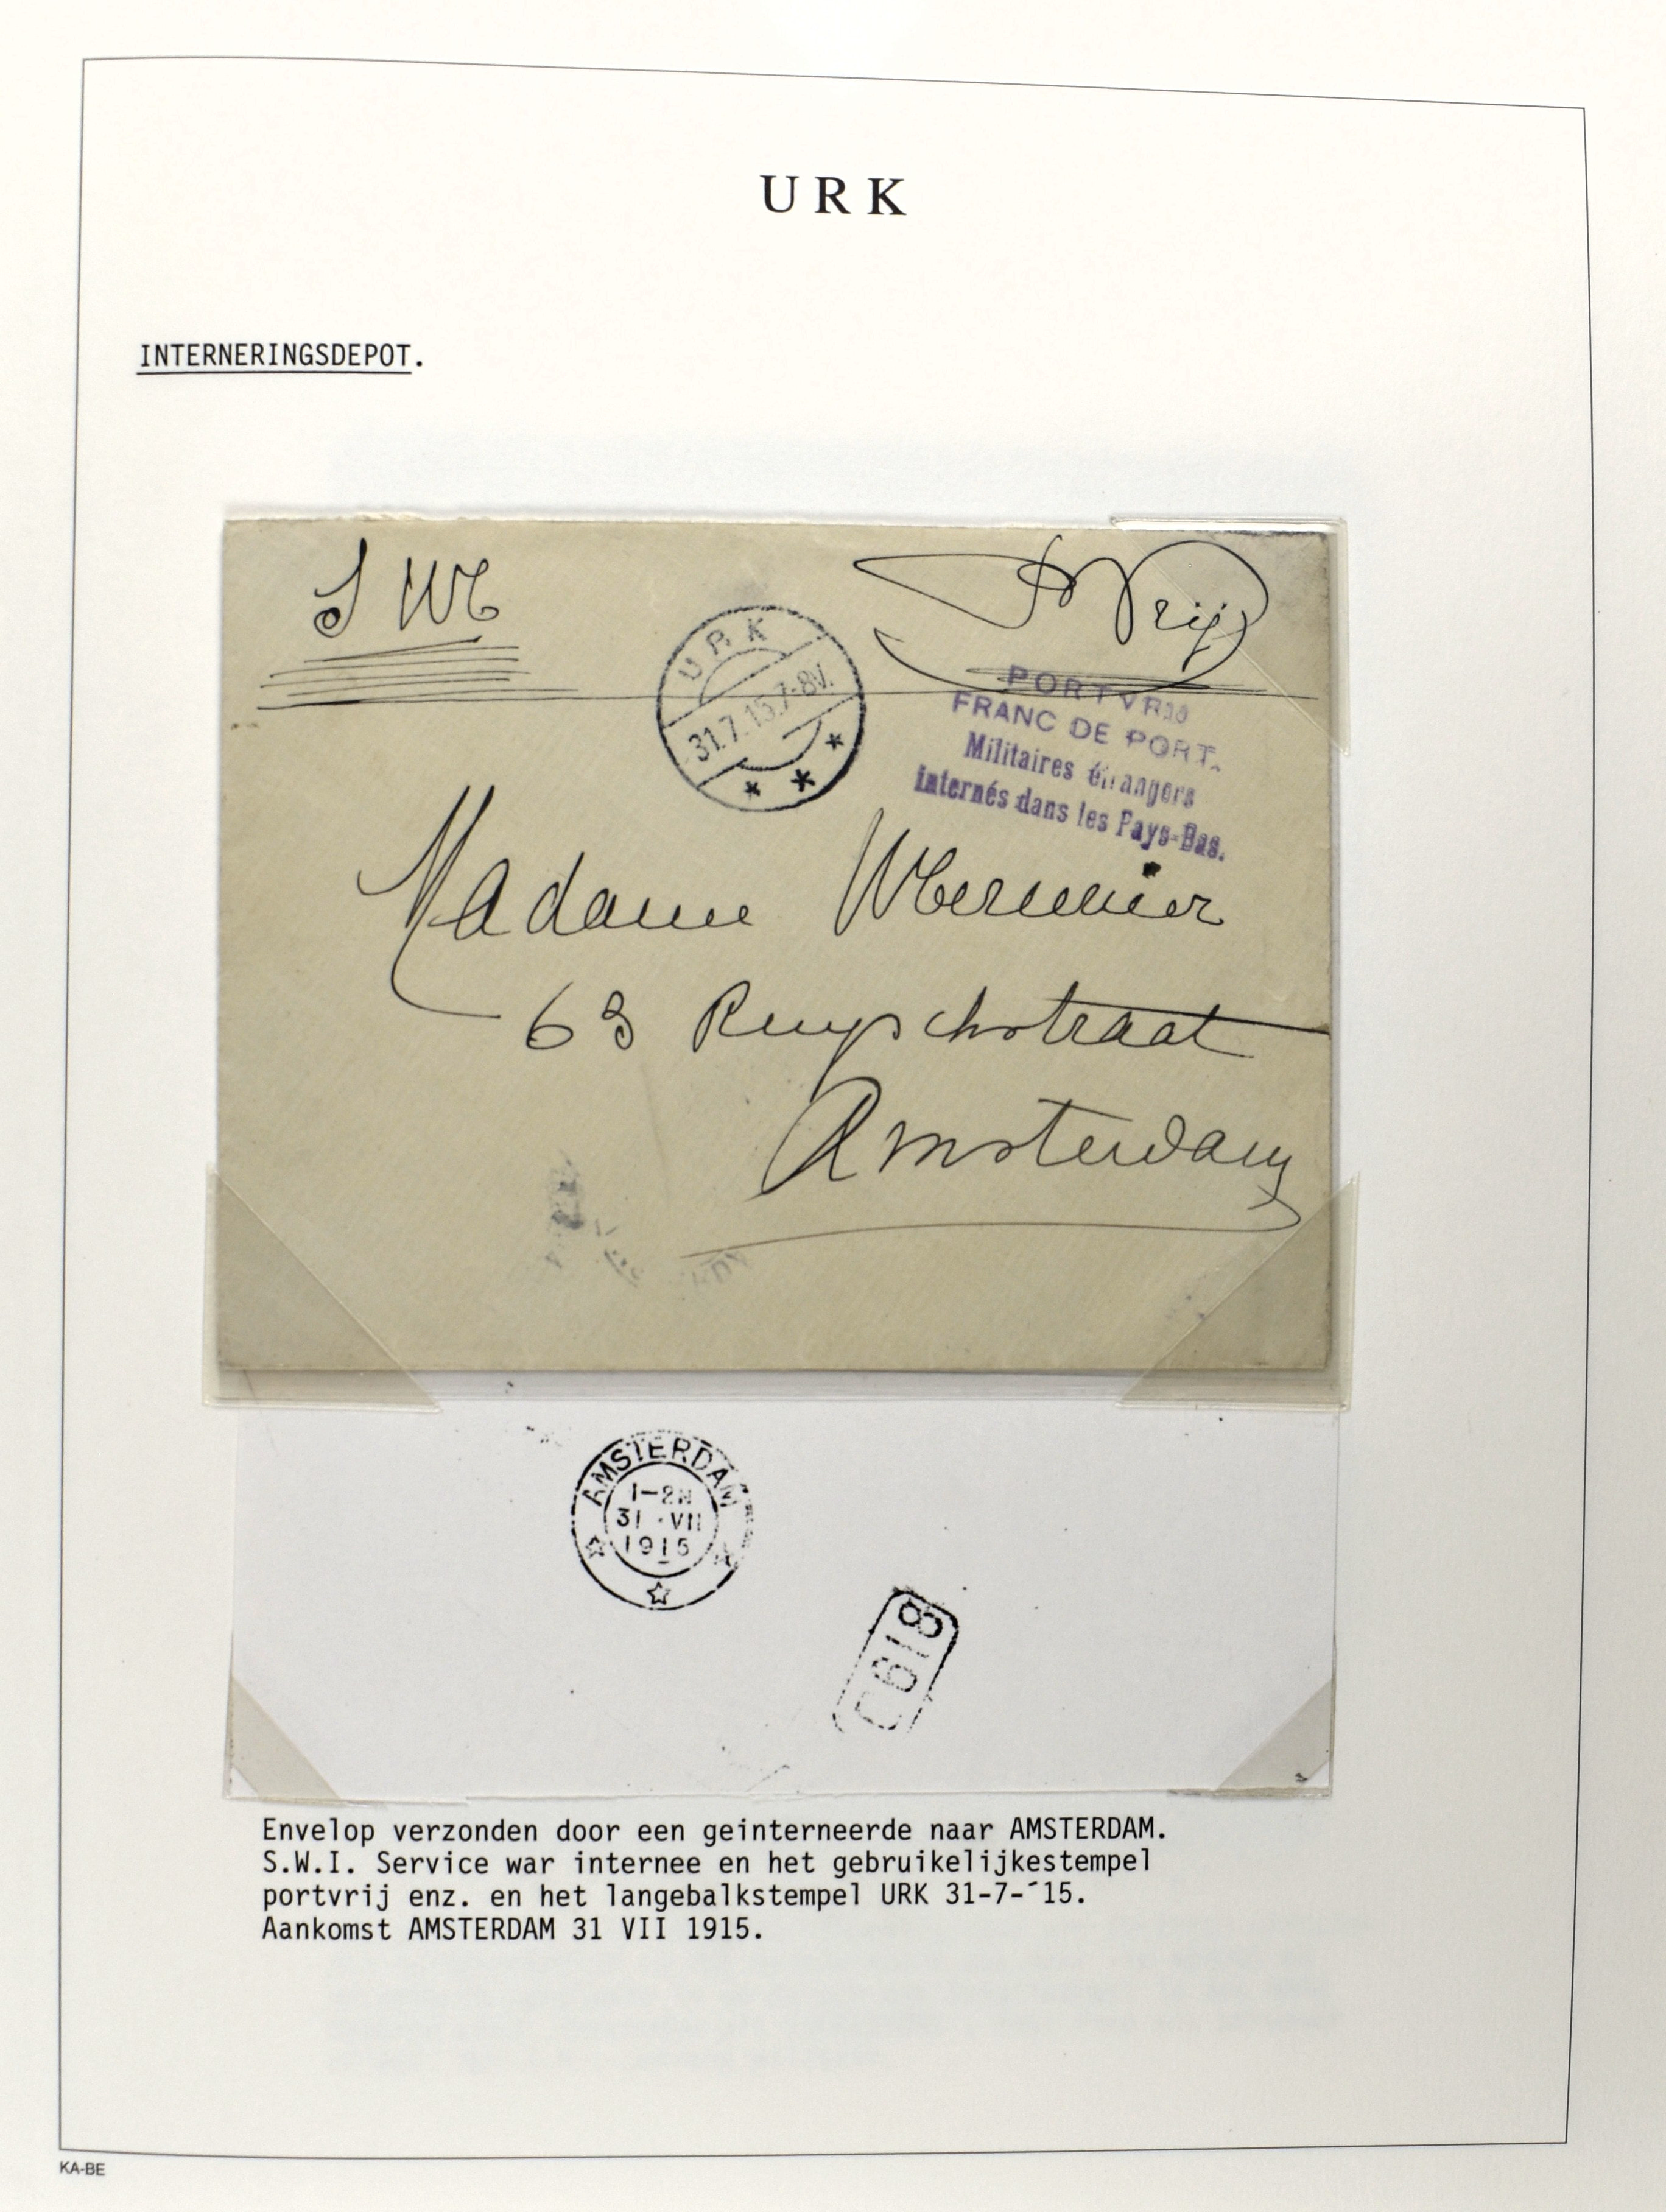 URK
INTERNERINGSDEPOT.
Vrij
URK
31.7.15.7-8V.
PORTVRIJ
FRANC DE PORT.
Militaires étrangers
internés dans les Pays-Bas.
Madame
63 Ruyschstraat
Amsterdam
AMSTERDAM
1-2N
31 VII
1915
Envelop verzonden door een geinterneerde naar AMSTERDAM.
S.W.I. Service war internee en het gebruikelijkestempel
portvrij enz. en het langebalkstempel URK 31-7-´15.
Aankomst AMSTERDAM 31 VII 1915.
KA-BE